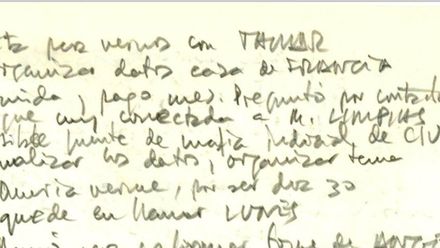 ta para vernos con TAMAR
organizar datos casa de FRANCIA
mida, pago mes. Pregunto por contacto
que muy conectada a M. LIMPIAS
sible fuente de mafia judicial, de C/U
nalizar los datos, organizar tema
Queria verme, por ser dia 30
quede en llamar LUNES